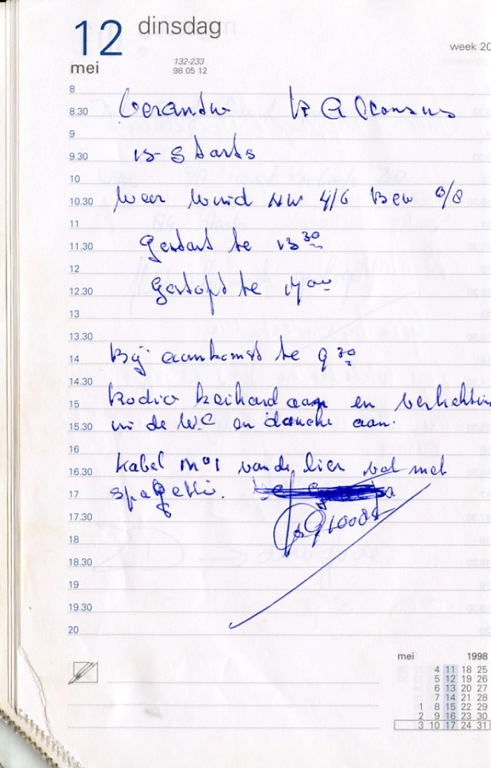 12 dinsdag
mei
week 20
132-233
98 05 12
8
8.30
9
9.30 15 Starts
10
10.30 Weer Wind NW 4/6 Bew 0/8
11
11.30 Gestart te 13 30
12
12.30 Gestopt te 17 00
13
13.30
14 Bij aankomst te 9 30
14.30
15 Radio keihard aan en verlichting
15.30 in de W.C en douche aan.
16
16.30 Kabel no 1 van de lier vol met
17 spagetti.
17.30
18
18.30
19
19.30
20
mei 1998
4 11 18 25
5 12 19 26
6 13 20 27
7 14 21 28
1 8 15 22 29
2 9 16 23 30
3 10 17 24 31